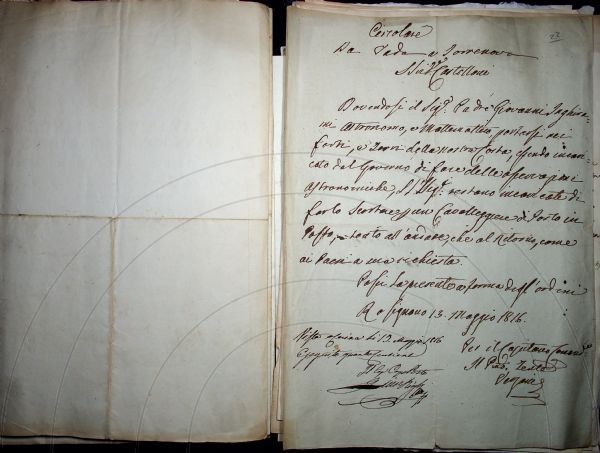 23
Circolare
Da Vada a Torrenova
SSig.ri Castellani
Dovendosi il Sig.r Padre Giovanni Inghira-
mi Astronomo, e Mattematico, portarsi nei
Forti, e Torri della nostra Costa, essendo incari-
cato dal Governo di fare delle operazioni
Astronomiche, SS. Sig.ri restano incaricate di
farlo scortare un Cavalleggiere di Posto in
Posto, tanto all' andare, che al Ritorno, come
ai Paesi a sua richiesta.
Passi la presente a forma degl' ordini
Rosignano 13. Maggio 1816.
Per il Capitano
Il Tente